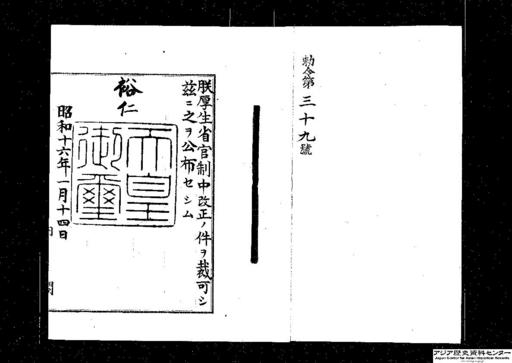 勅令第三十九號
朕厚生省官制中改正ノ件ヲ裁可シ
茲ニ之ヲ公布セシム
裕仁
天皇
御璽
昭和十六年一月十四日
内閣
アジア歴史資料センター
Japan Center for Asian Historical Records